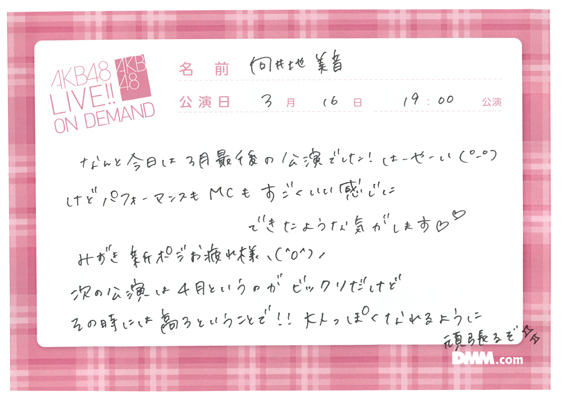 AKB48
LIVE!!
ON DEMAND
AKB
48
名前 向井地 美音
公演日 3月 16日 19:00 公演
なんと今日は3月最後の公演でした! はーやーい(°-°)
けどパフォーマンスもMCもすごくいい感じに
できたような気がします♡♡
みずき新ポジお疲れ様ヽ(^o^)ノ
次の公演は4月というのがビックリだけど
その時には高3ということで!! 大人っぽくなれるように
頑張るぞ☆☆
DMM.com